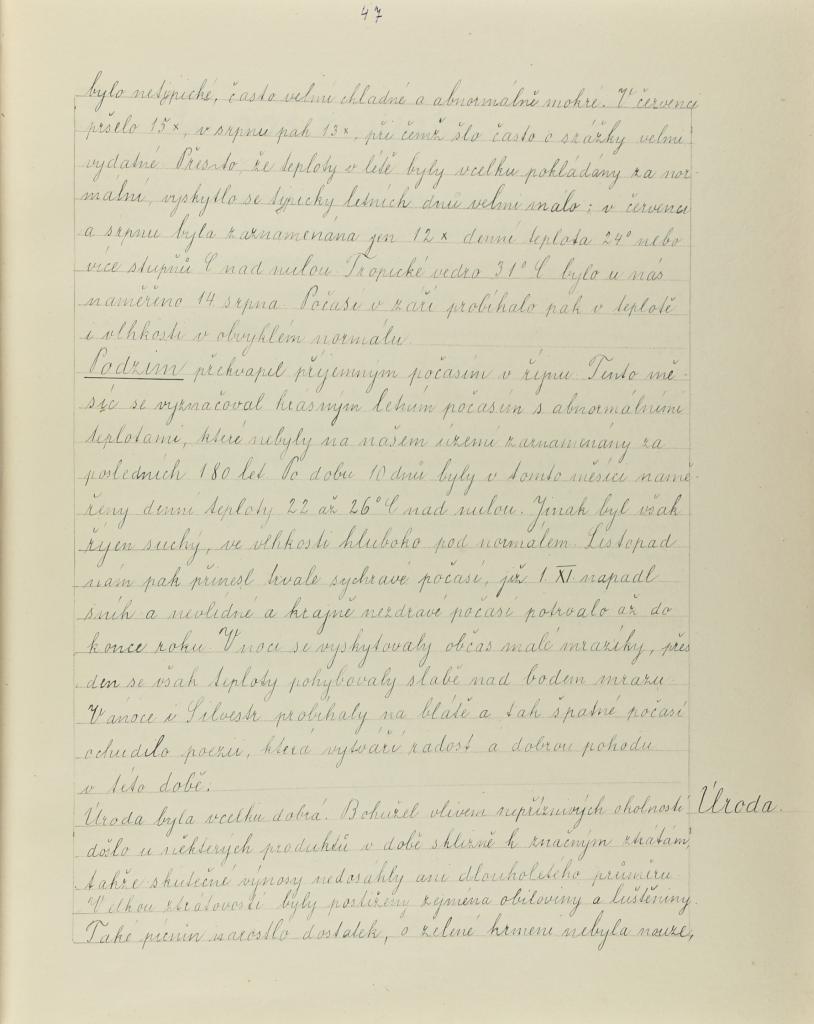 47
bylo netypické, často velmi chladné a abnormálně mokré. V červenci
pršelo 15x, v srpnu pak 13x, při čemž šlo často o srážky velmi
vydatné. Přesto, že teploty v létě byly vcelku pokládány za nor-
mální, vyskytlo se typicky letních dnů velmi málo; v červenci
a srpnu byla zaznamenána jen 12x denní teplota 24° nebo
více stupňů C nad nulou. Tropické vedro 31° C bylo u nás
naměřeno 14. srpna. Počasí v září probíhalo pak v teplotě
i vlhkosti v obvyklém normálu.
Podzim překvapil příjemným počasím v říjnu. Tento mě-
síc se vyznačoval krásným letním počasím s abnormálními
teplotami, které nebyly na našem území zaznamenány za
posledních 180 let. Po dobu 10 dnů byly v tomto měsíci namě-
řeny denní teploty 22 až 26° C nad nulou. Jinak byl však
říjen suchý, ve vlhkosti hluboko pod normálem. Listopad
nám pak přinesl trvale sychravé počasí, již 1. XI. napadl
sníh a nevlídné a krajně nezdravé počasí potrvalo až do
konce roku. V noci se vyskytovaly občas malé mrazíky, přes
den se však teploty pohybovaly slabě nad bodem mrazu.
Vánoce i Silvestr probíhaly na blátě a tak špatné počasí
ochudilo poezii, která vytváří radost a dobrou pohodu
v této době.
Úroda byla vcelku dobrá. Bohužel vlivem nepříznivých okolností
došlo u některých produktů v době sklizně k značným ztrátám,
takže skutečné výnosy nedosáhly ani dlouholetého průměru.
Velkou ztrátovostí byly postiženy zejména obiloviny a luštěniny.
Také pícnin narostlo dostatek, o zelené krmení nebyla nouze,
Úroda.